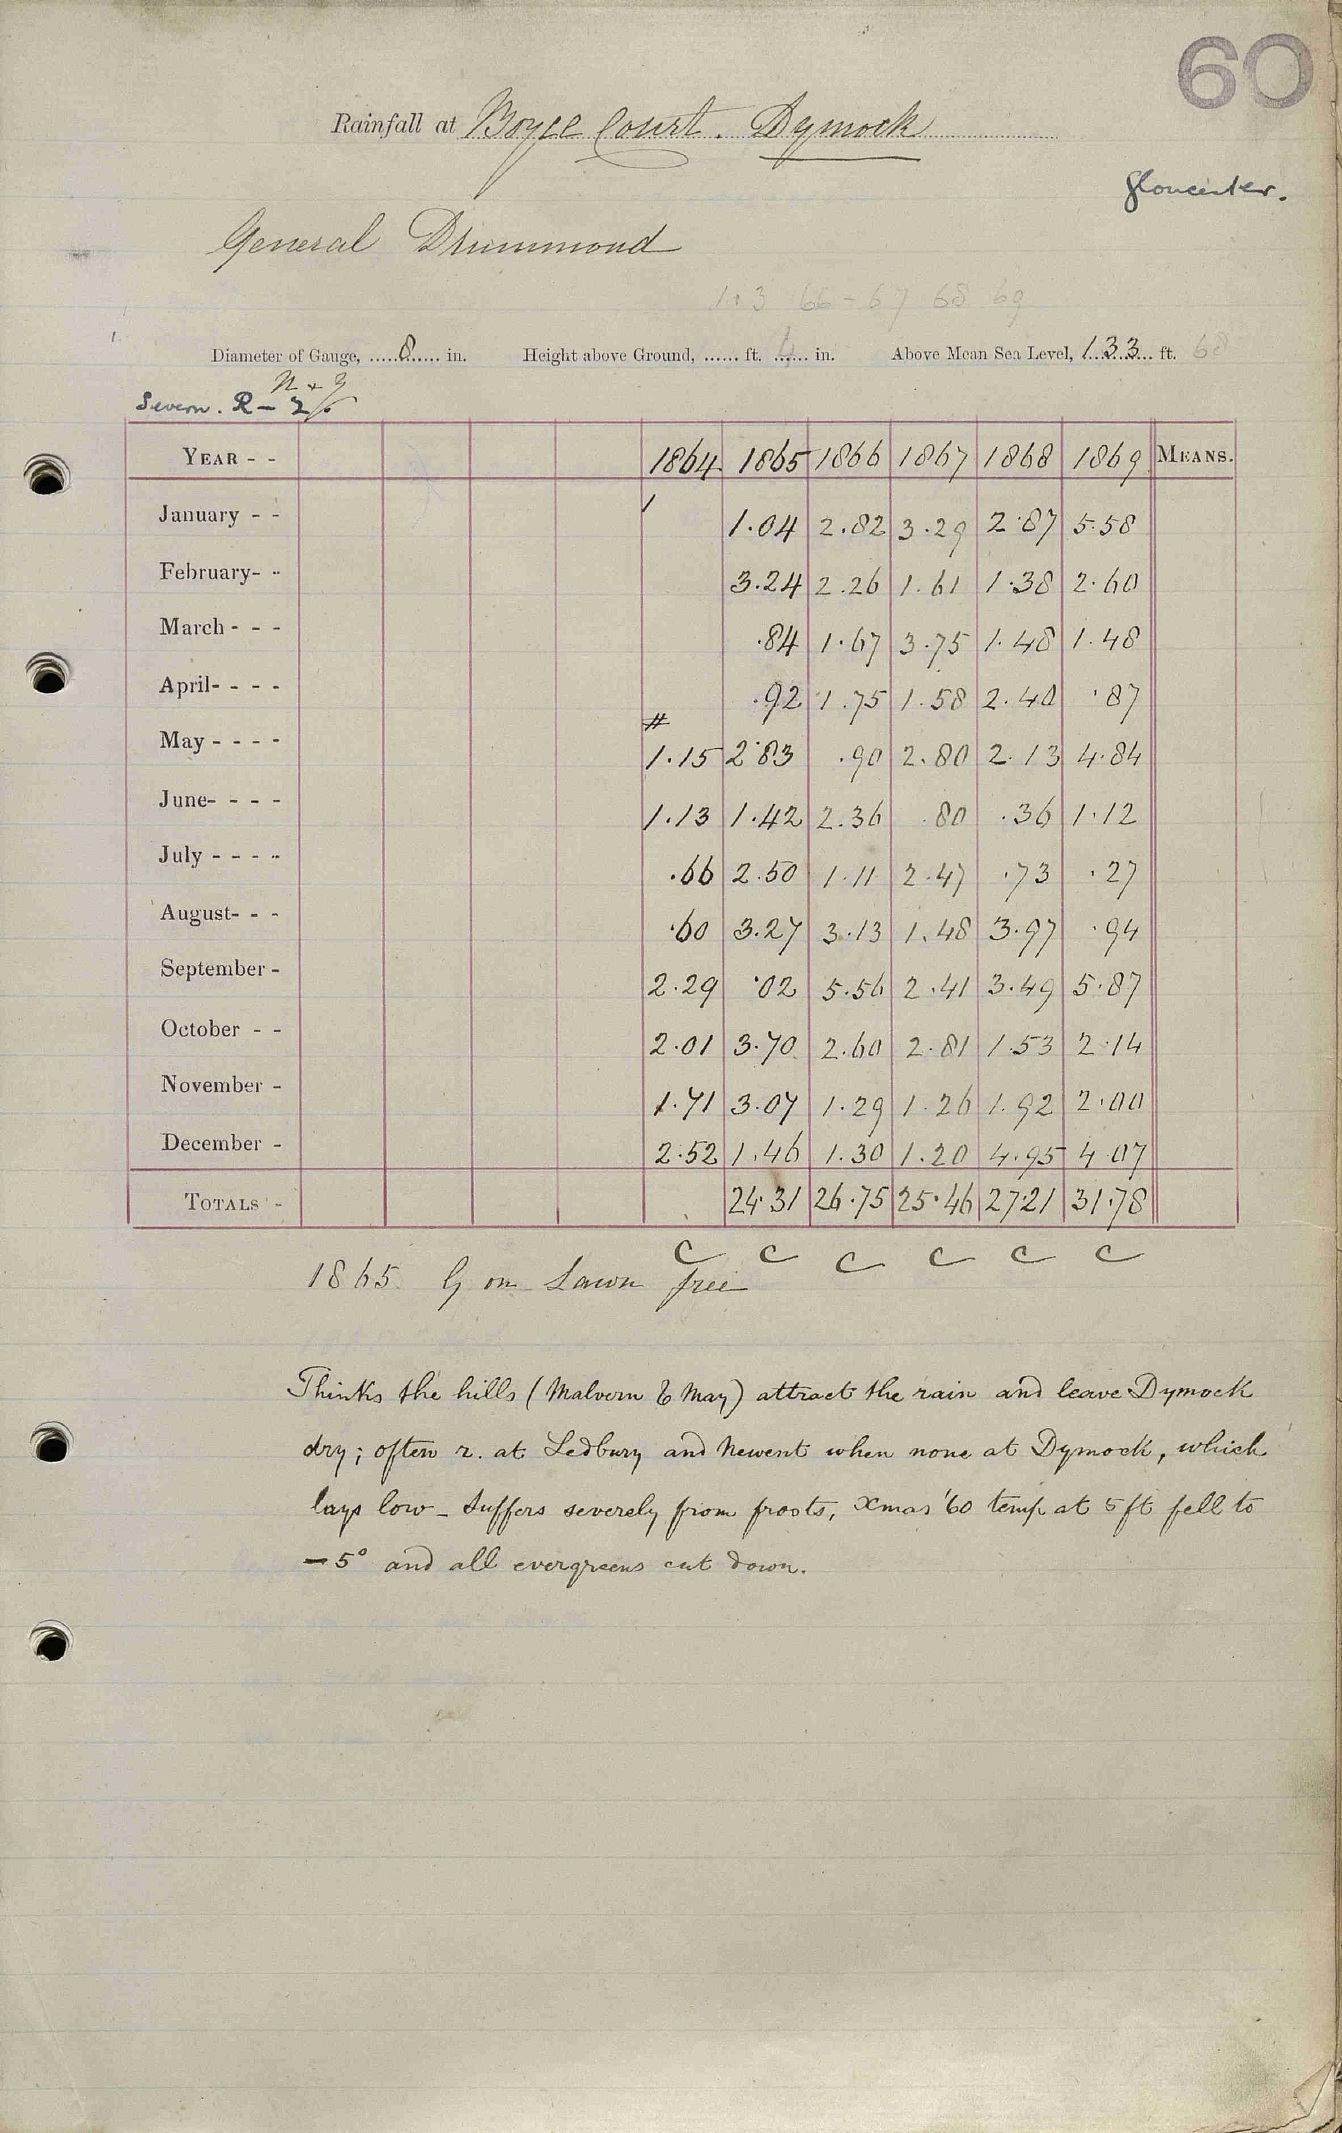 60
Rainfall at Boyce Court. Dymock
Gloucester.
General Drummond
66-67 68 69
Diameter of Gauge, ......8...... in. Height above Ground, ...... ft. ...... in. Above Mean Sea Level, 133 ft. 68
Severn. R-
YEAR - - 1864 1865 1866 1867 1868 1869 MEANS.
January - - 1.04 2.82 3.29 2.87 5.58
February- - 3.24 2.26 1.61 1.38 2.60
March - - - .84 1.67 3.75 1.48 1.48
April- - - - .92 1.75 1.58 2.40 .87
#
May - - - - 1.15 2.83 .90 2.80 2.13 4.84
June- - - - 1.13 1.42 2.36 .80 .36 1.12
July - - - - .66 2.50 1.11 2.47 .73 .27
August- - - .60 3.27 3.13 1.48 3.97 .94
September - 2.29 .02 5.56 2.41 3.49 5.87
October - - 2.01 3.70 2.60 2.81 1.53 2.14
November - 1.71 3.07 1.29 1.26 1.92 2.00
December - 2.52 1.46 1.30 1.20 4.95 4.07
TOTALS - 24.31 26.75 25.46 27.21 31.78
C C C C C C
1865. G on Lawn free
Thinks the hills (Malvern & May) attract the rain and leave Dymock
dry; often r. at Ledbury and Newent when none at Dymock, which
lays low - Suffers severely from frosts, Xmas '60 temp at 5 ft fell to
-5° and all evergreens cut down.